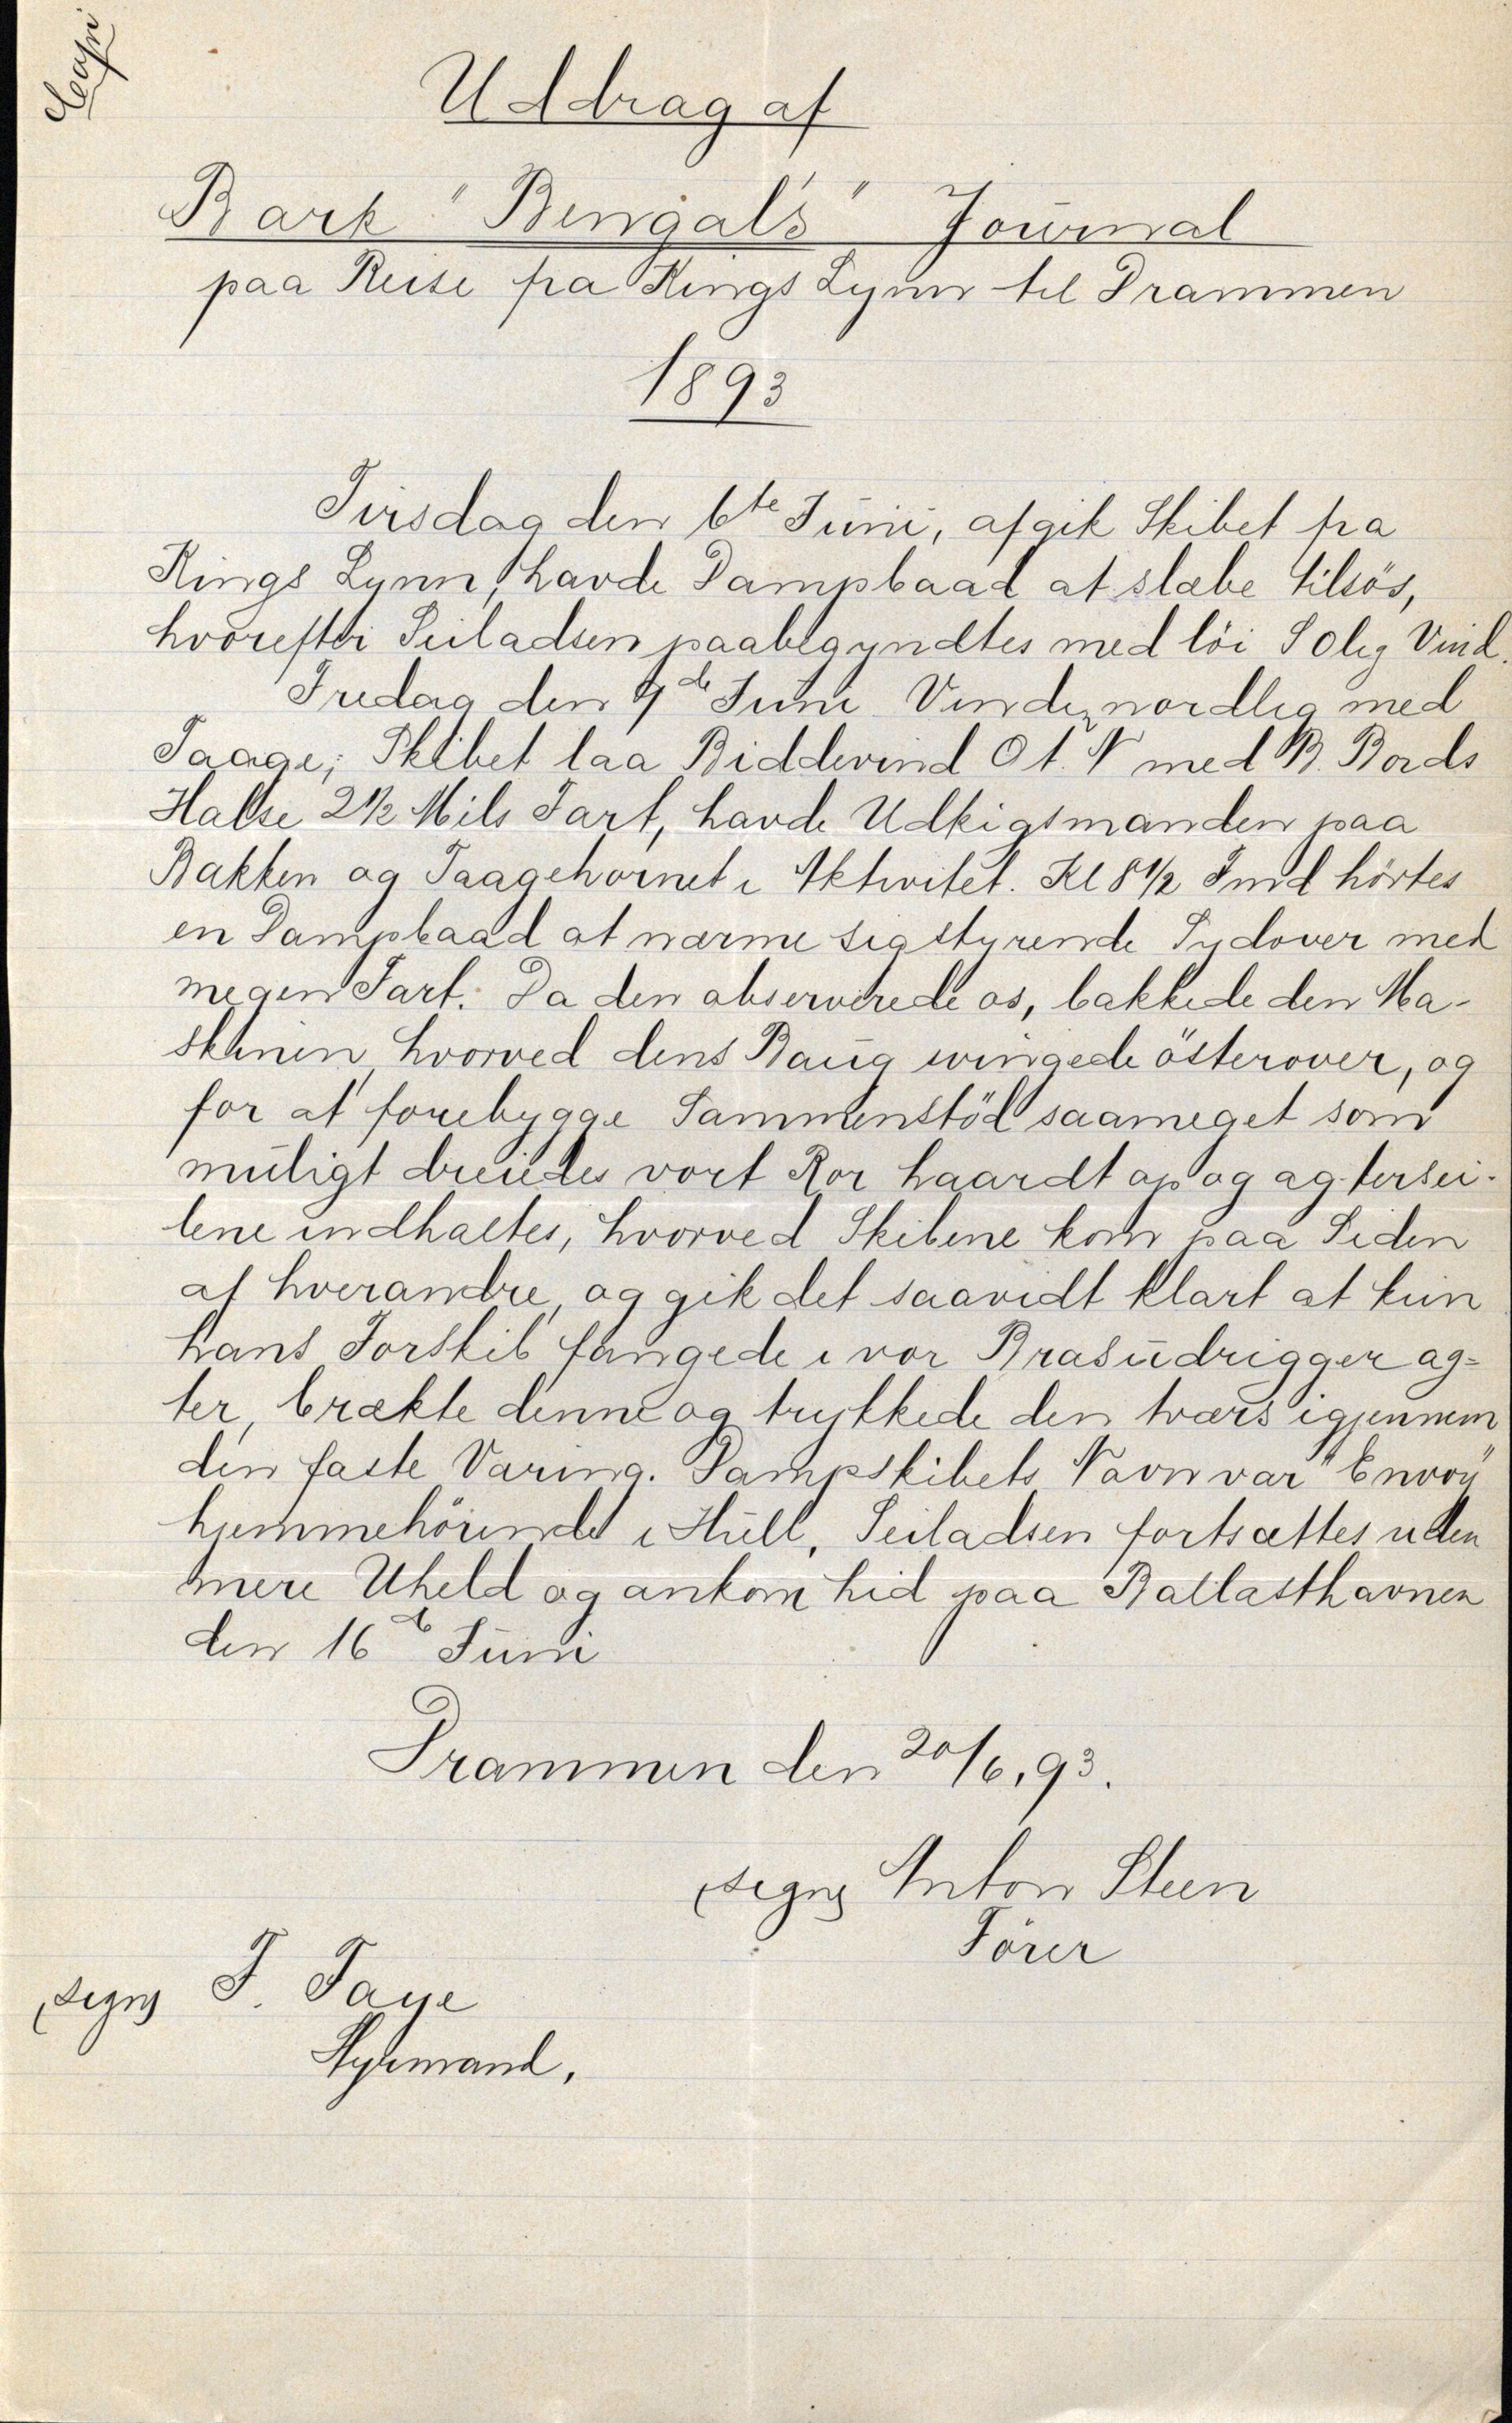 Copi
Uddrag af
Bark "Bengal's" Journal
paa Reise fra Kings Lynn til Drammen
1893
Tirsdag den 6te Juni, afgik Skibet fra
Kings Lynn, havde Dampbaad at slæbe tilsös,
hvorefter Seiladsen paabegyndtes med löi SOlig Vind.
Fredag den 9de Juni Vinden nordlig med
Taage; Skibet laa Biddevind O t. N med B. Bords
Halse 2 1/2 Mils Fart, havde Udkigsmanden paa
Bakken og Taagehornet i Aktivitet. Kl 8 1/2 Fmd hörtes
en Dampbaad at nærme sig styrende Sydover med
megen Fart. Da den observerede os, bakkede den Ma-
skinen, hvorved dens Baug svingede österover, og
for at forebygge Sammenstöd saameget som
muligt dreiedes vort Ror haardt op og agtersei-
lene indhaltes, hvorved Skibene kom paa Siden
af hverandre, og gik det saavidt klart at kun
hans Forskib fangede i vor Brasudrigger ag=
ter, brækte denne og trykkede den tværs igjennem
den faste Varing. Dampskibets Navn var "Envoy"
hjemmehörende i Hull. Seiladsen fortsættes uden
mere Uheld og ankom hid paa Ballasthavnen
den 16de Juni
Drammen den 20/6, 93.
(sign) Anton Steen
Förer
(sign) F. Faye
Styrmand.